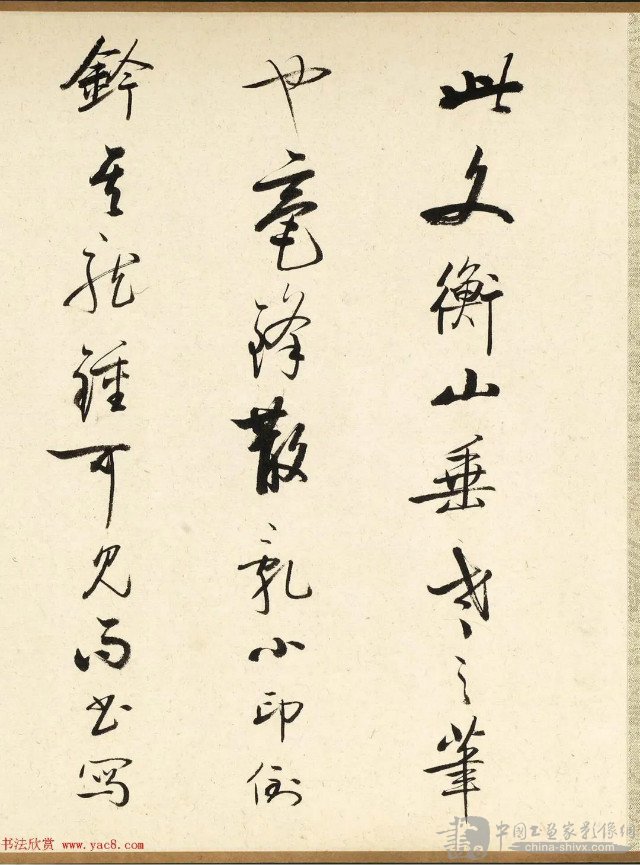 此文衡山垂老之筆
也毫鋒散亂小印倒
鈐其龍鍾可見而書寫
书法欣赏 www.yac8.com
中国书画家影像网
china-shivx.com